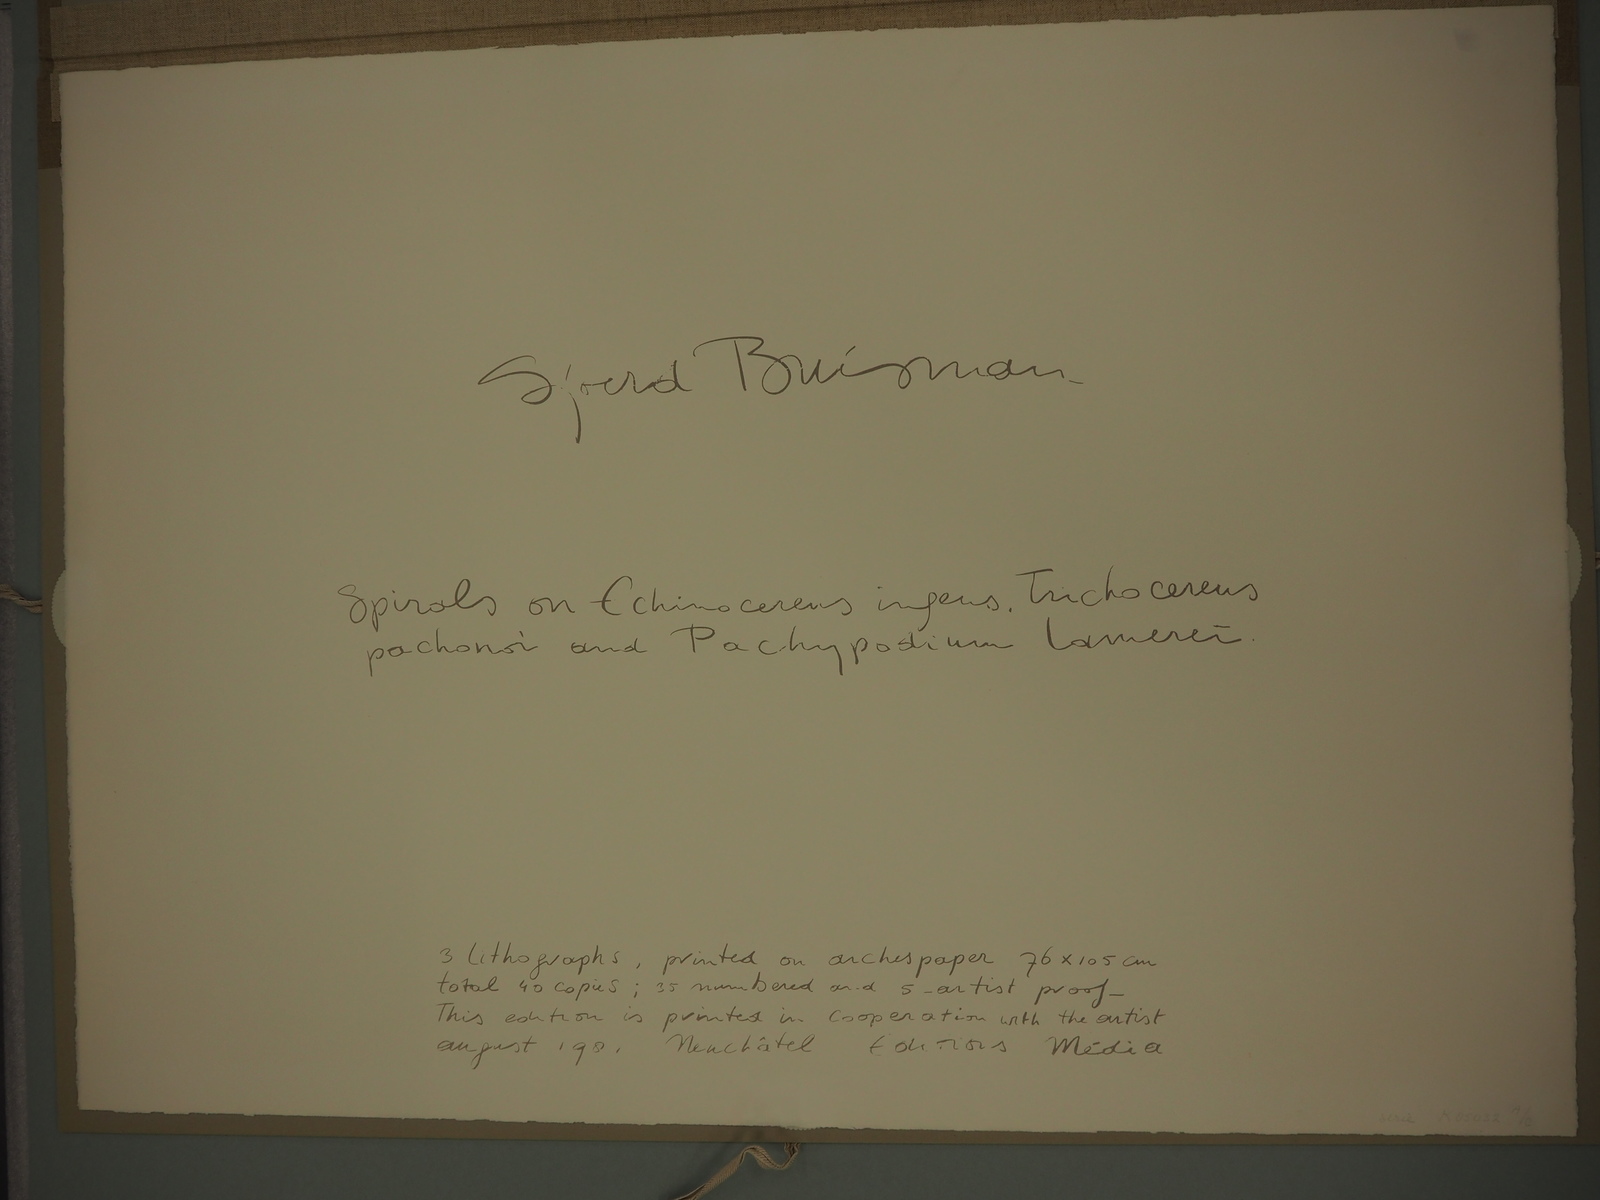 Sjoerd Buisman
Spirals on Echinocereus ingens, Trichocereus
pachonoi and Pachypodium Lamerei.
3 lithographs, printed on archespaper 76 x 105 cm
total 40 copies; 35 numbered and 5 artist proof
This edition is printed in cooperation with the artist
august Neuchâtel Editions Média